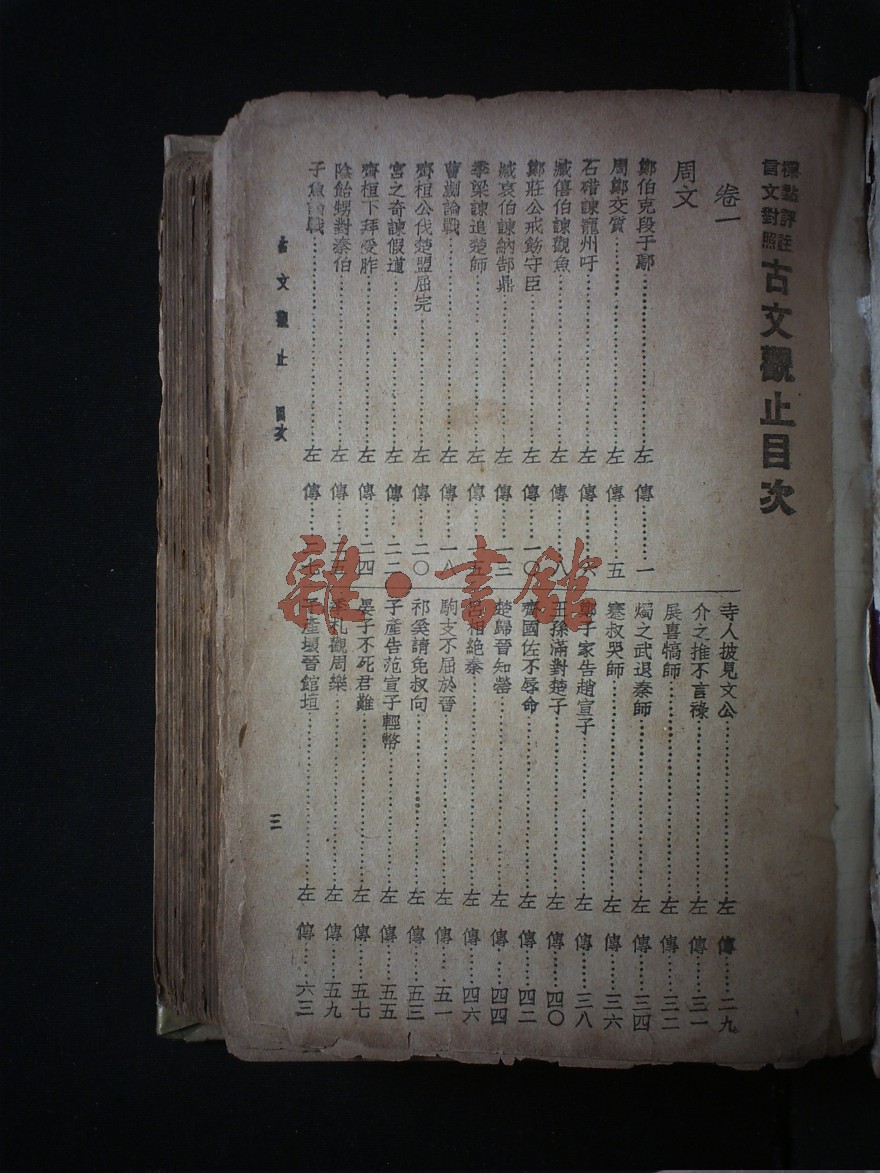 標點評註
言文對照
古文觀止目次
卷一
周文
鄭伯克段于鄢……左傳……一
周鄭交質……左傳……五
石碏諫寵州吁……左傳……六
臧僖伯諫觀魚……左傳……八
鄭莊公戒飭守臣……左傳……一〇
臧哀伯諫納郜鼎……左傳……一三
季梁諫追楚師……左傳……五
曹劌論戰……左傳……一八
齊桓公伐楚盟屈完……左傳……二〇
宮之奇諫假道……左傳……二二
齊桓下拜受胙……左傳……二四
陰飴甥對秦伯……左傳……二五
子魚論戰……左傳……二七
寺人披見文公……左傳……二九
介之推不言祿……左傳……三一
展喜犒師……左傳……三二
燭之武退秦師……左傳……三四
蹇叔哭師……左傳……三六
鄭子家告趙宣子……左傳……三八
王孫滿對楚子……左傳……四〇
齊國佐不辱命……左傳……四二
楚歸晉知罃……左傳……四四
呂相絕秦……左傳……四六
駒支不屈於晉……左傳……五一
祁奚請免叔向……左傳……五三
子產告范宣子輕幣……左傳……五五
晏子不死君難……左傳……五七
季札觀周樂……左傳……五九
子產壞晉館垣……左傳……六三
古文觀止 目次
三
雜·書館